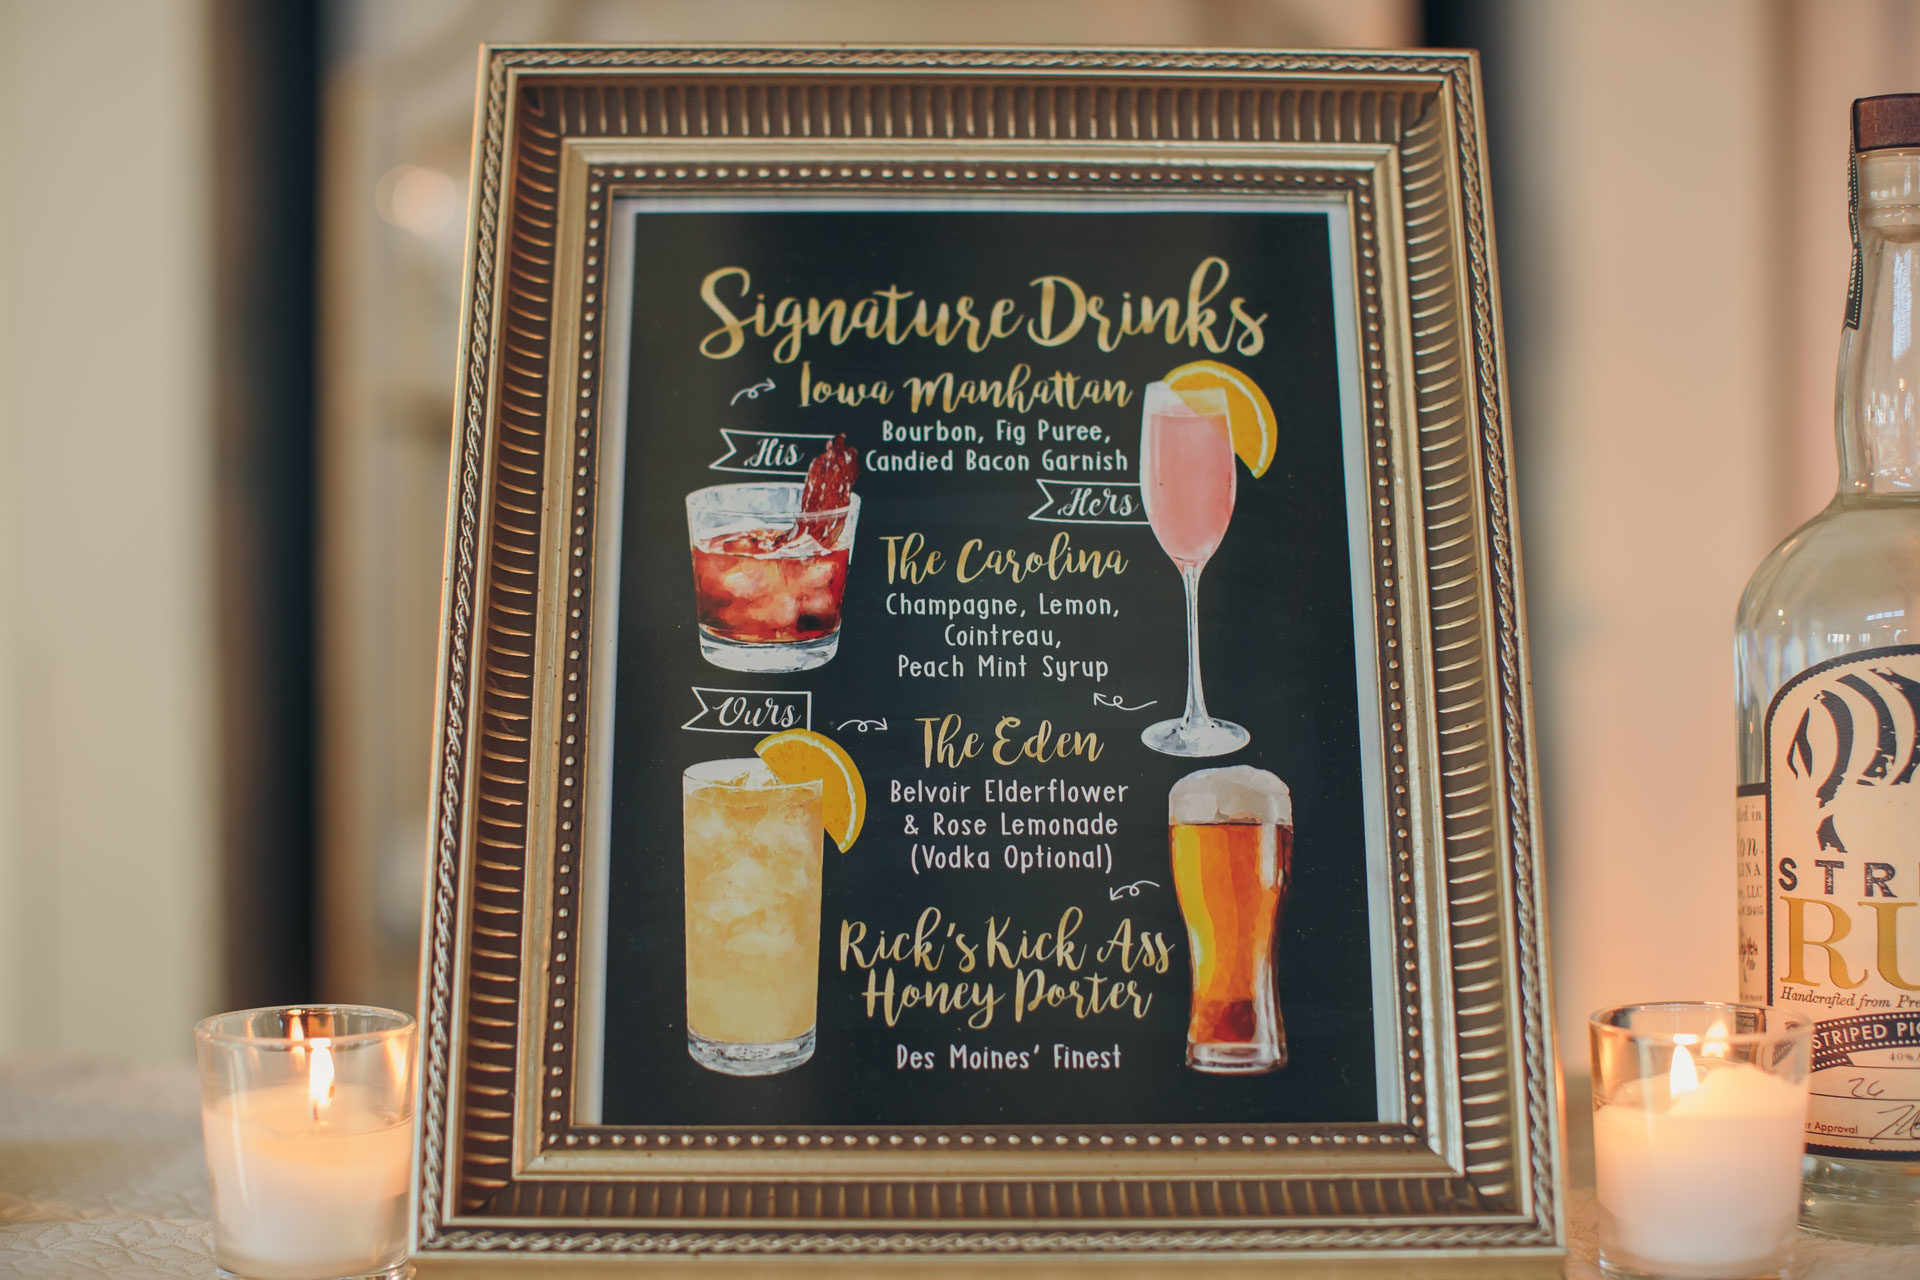 Signature Drinks
Iowa Manhattan
His
Bourbon, Fig Puree,
Candied Bacon Garnish
Hers
The Carolina
Champagne, Lemon,
Cointreau,
Peach Mint Syrup
Ours
The Eden
Belvoir Elderflower
& Rose Lemonade
(Vodka Optional)
Rick's Kick Ass
Honey Porter
Des Moines' Finest
STR
RU
Handcrafted from Pre
STRIPED PI
40%
26
r Approval
LLC